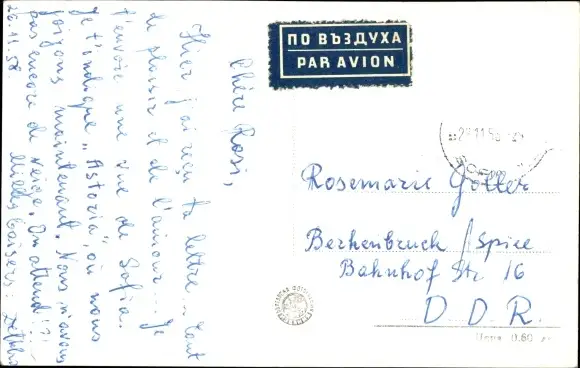 Chère Rosi,
Hier j'ai reçu ta lettre... tant
de plaisir et de l'amour... Je
t'envoie une vue de Sofia.
Je t'indique "Astoria", où nous
joigons maintenant. Nous n'avons
pas encore de neige. On attend!?!
Milles baisers:
26.11.58.
ПО ВЪЗДУХА
PAR AVION
Rosemarie Goller
Berkenbruck/Spree
Bahnhof Str 16
D. D. R.
Цена 0.60 лв